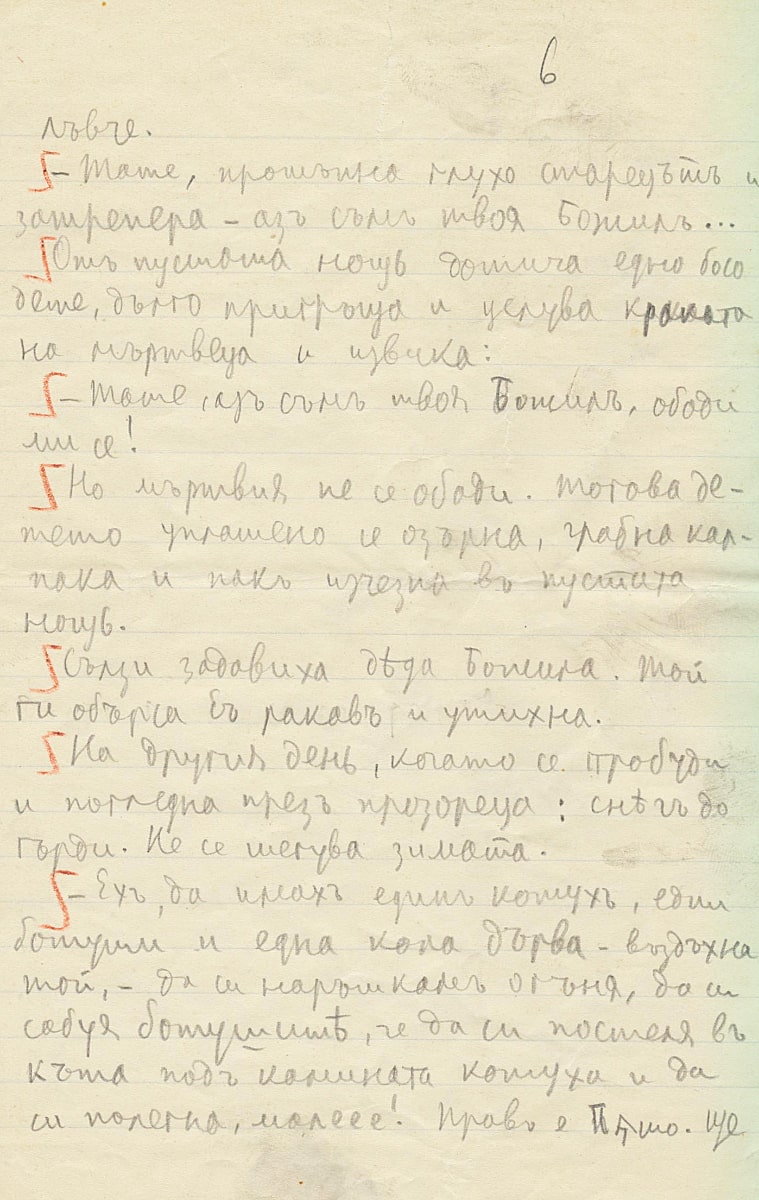 6
лъвче.
– Тате, прошъпна глухо старецътъ и
затрепера – азъ съмь твоя Божилъ...
Отъ пустата нощь дотича едно босо
дете, дълго пригръща и целува краката
на мъртвеца и извика:
– Тате, азъ съмь твоя Божилъ, обади
ми се!
Но мъртвия не се обади. Тогава де-
тето уплашено се озърна, грабна кал-
пака и пакъ изчезна въ пустата
нощь.
Сълзи задавиха дѣда Божила. Той
ги обърса съ ракавъ и утихна.
На другия день, когато се пробуди
и погледна презъ прозореца: снѣгъ до
гърди. Не се шегува зимата.
– Ехъ, да имахъ единъ кожухъ, едни
ботуши и една кола дърва – въздъхна
той, – да си наръшкамъ огъня, да си
събуя ботушитѣ, че да си постеля въ
къта подъ камината кожуха и да
си полегна, малеее! Правъ е Пѣтю. Ще